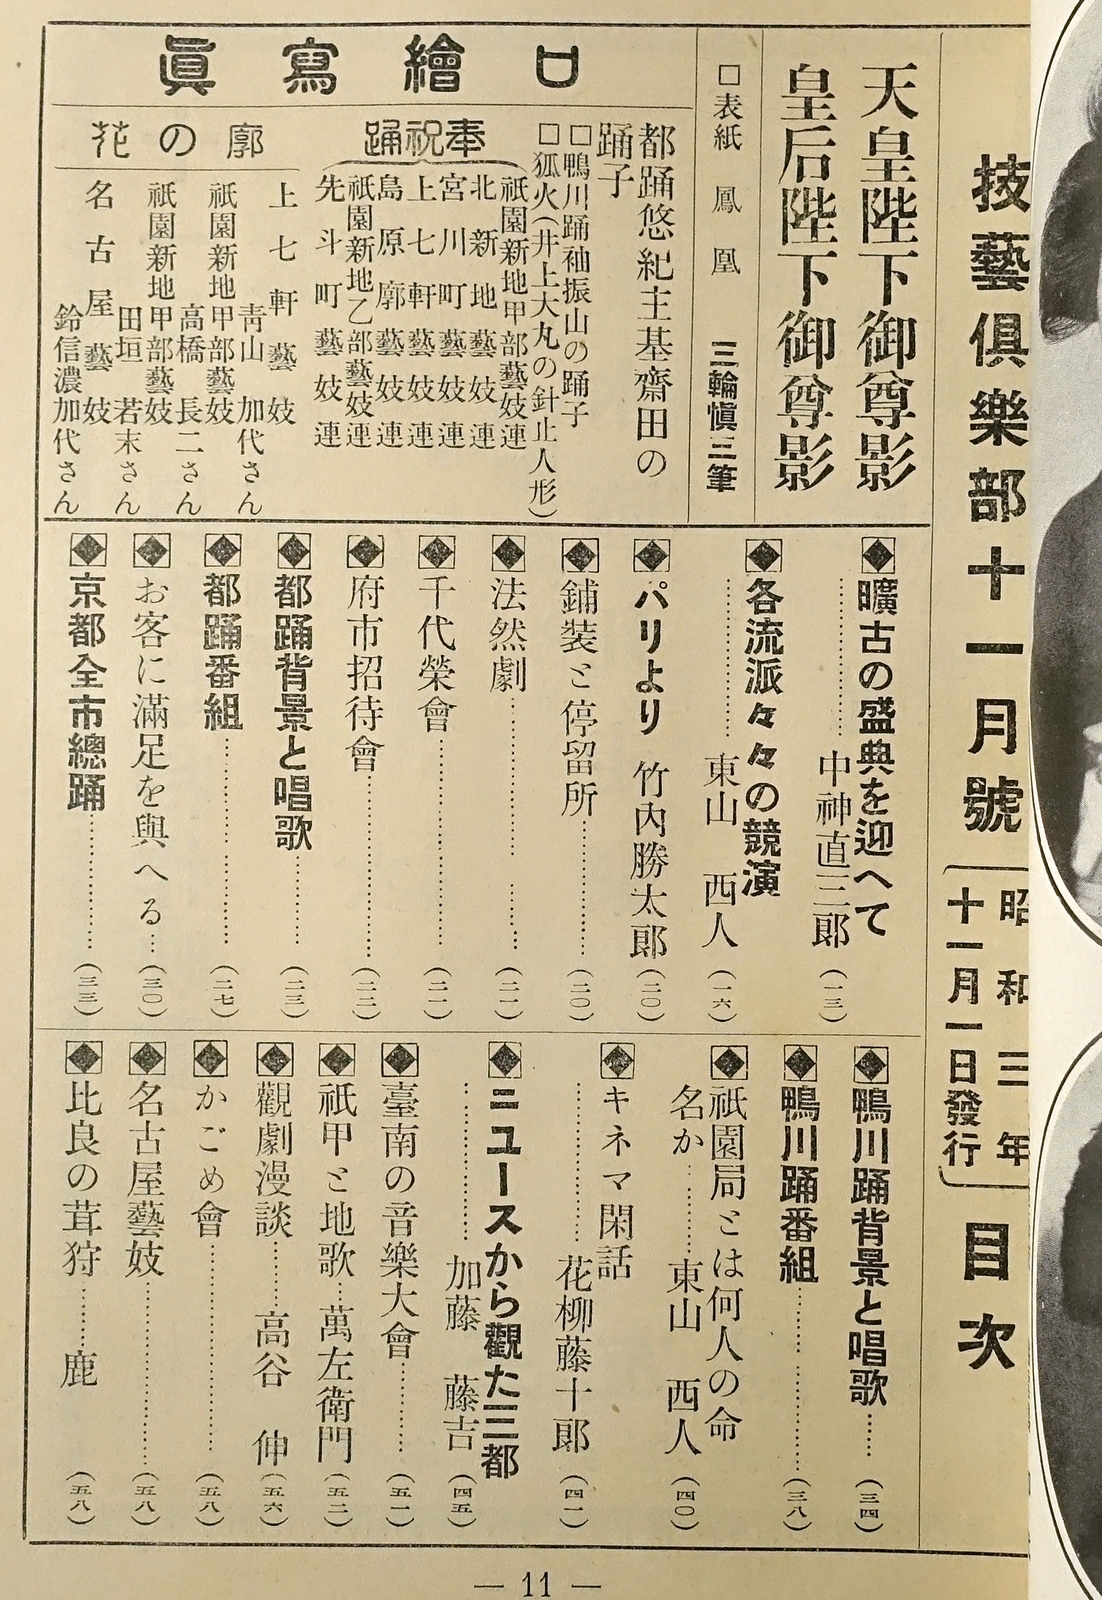 技藝俱樂部十一月號
昭和三年
十一月一日發行
目次
天皇陛下御尊影
皇后陛下御尊影
□表紙 鳳凰 三輪愼三筆
口繪寫眞
都踊悠紀主基齋田の
踊子
□鴨川踊袖振山の踊子
□狐火(井上大丸の針止人形)
奉祝踊
祇園新地甲部藝妓連
北新地藝妓連
宮川町藝妓連
上七軒藝妓連
島原廓藝妓連
祇園新地乙部藝妓連
先斗町藝妓連
廓の花
上七軒藝妓
靑山 加代さん
祇園新地甲部藝妓
高橋 長二さん
祇園新地甲部藝妓
田垣 若末さん
名古屋藝妓
鈴信濃加代さん
曠古の盛典を迎へて
……中神直三郎(一三)
各流派々々の競演
……東山 西人(一六)
パリより 竹內勝太郎(二〇)
鋪裝と停留所……(二〇)
法然劇……(二一)
千代榮會……(二一)
府市招待會……(二二)
都踊背景と唱歌……(二三)
都踊番組……(二七)
お客に滿足を與へる…(三〇)
京都全市總踊……(三三)
鴨川踊背景と唱歌……(三四)
鴨川踊番組……(三八)
祇園局とは何人の命
名か……東山 西人(四〇)
キネマ閑話
……花柳藤十郎(四一)
ニユースから觀た三都
……加藤 藤吉(四五)
臺南の音樂大會……(五一)
祇甲と地歌…萬左衛門(五二)
觀劇漫談……高谷 伸(五六)
かごめ會……(五八)
名古屋藝妓……(五八)
比良の茸狩……鹿(五八)
— 11 —